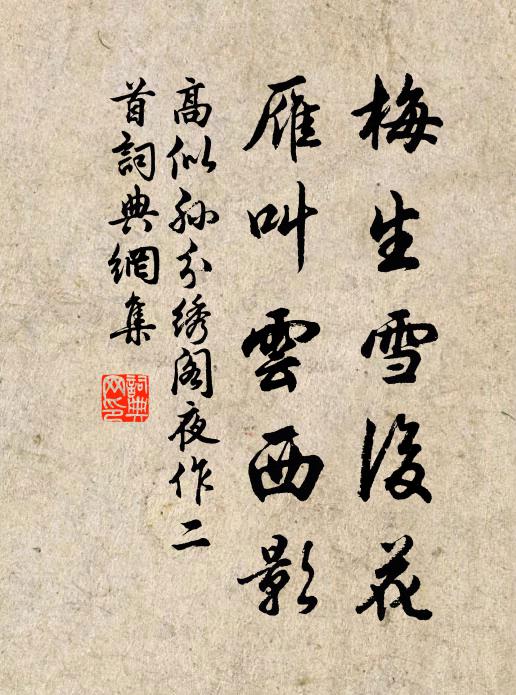 梅生雪後花
雁叫雲西影
高似孙分绣阁夜作二
首詞典網集
詞典网印